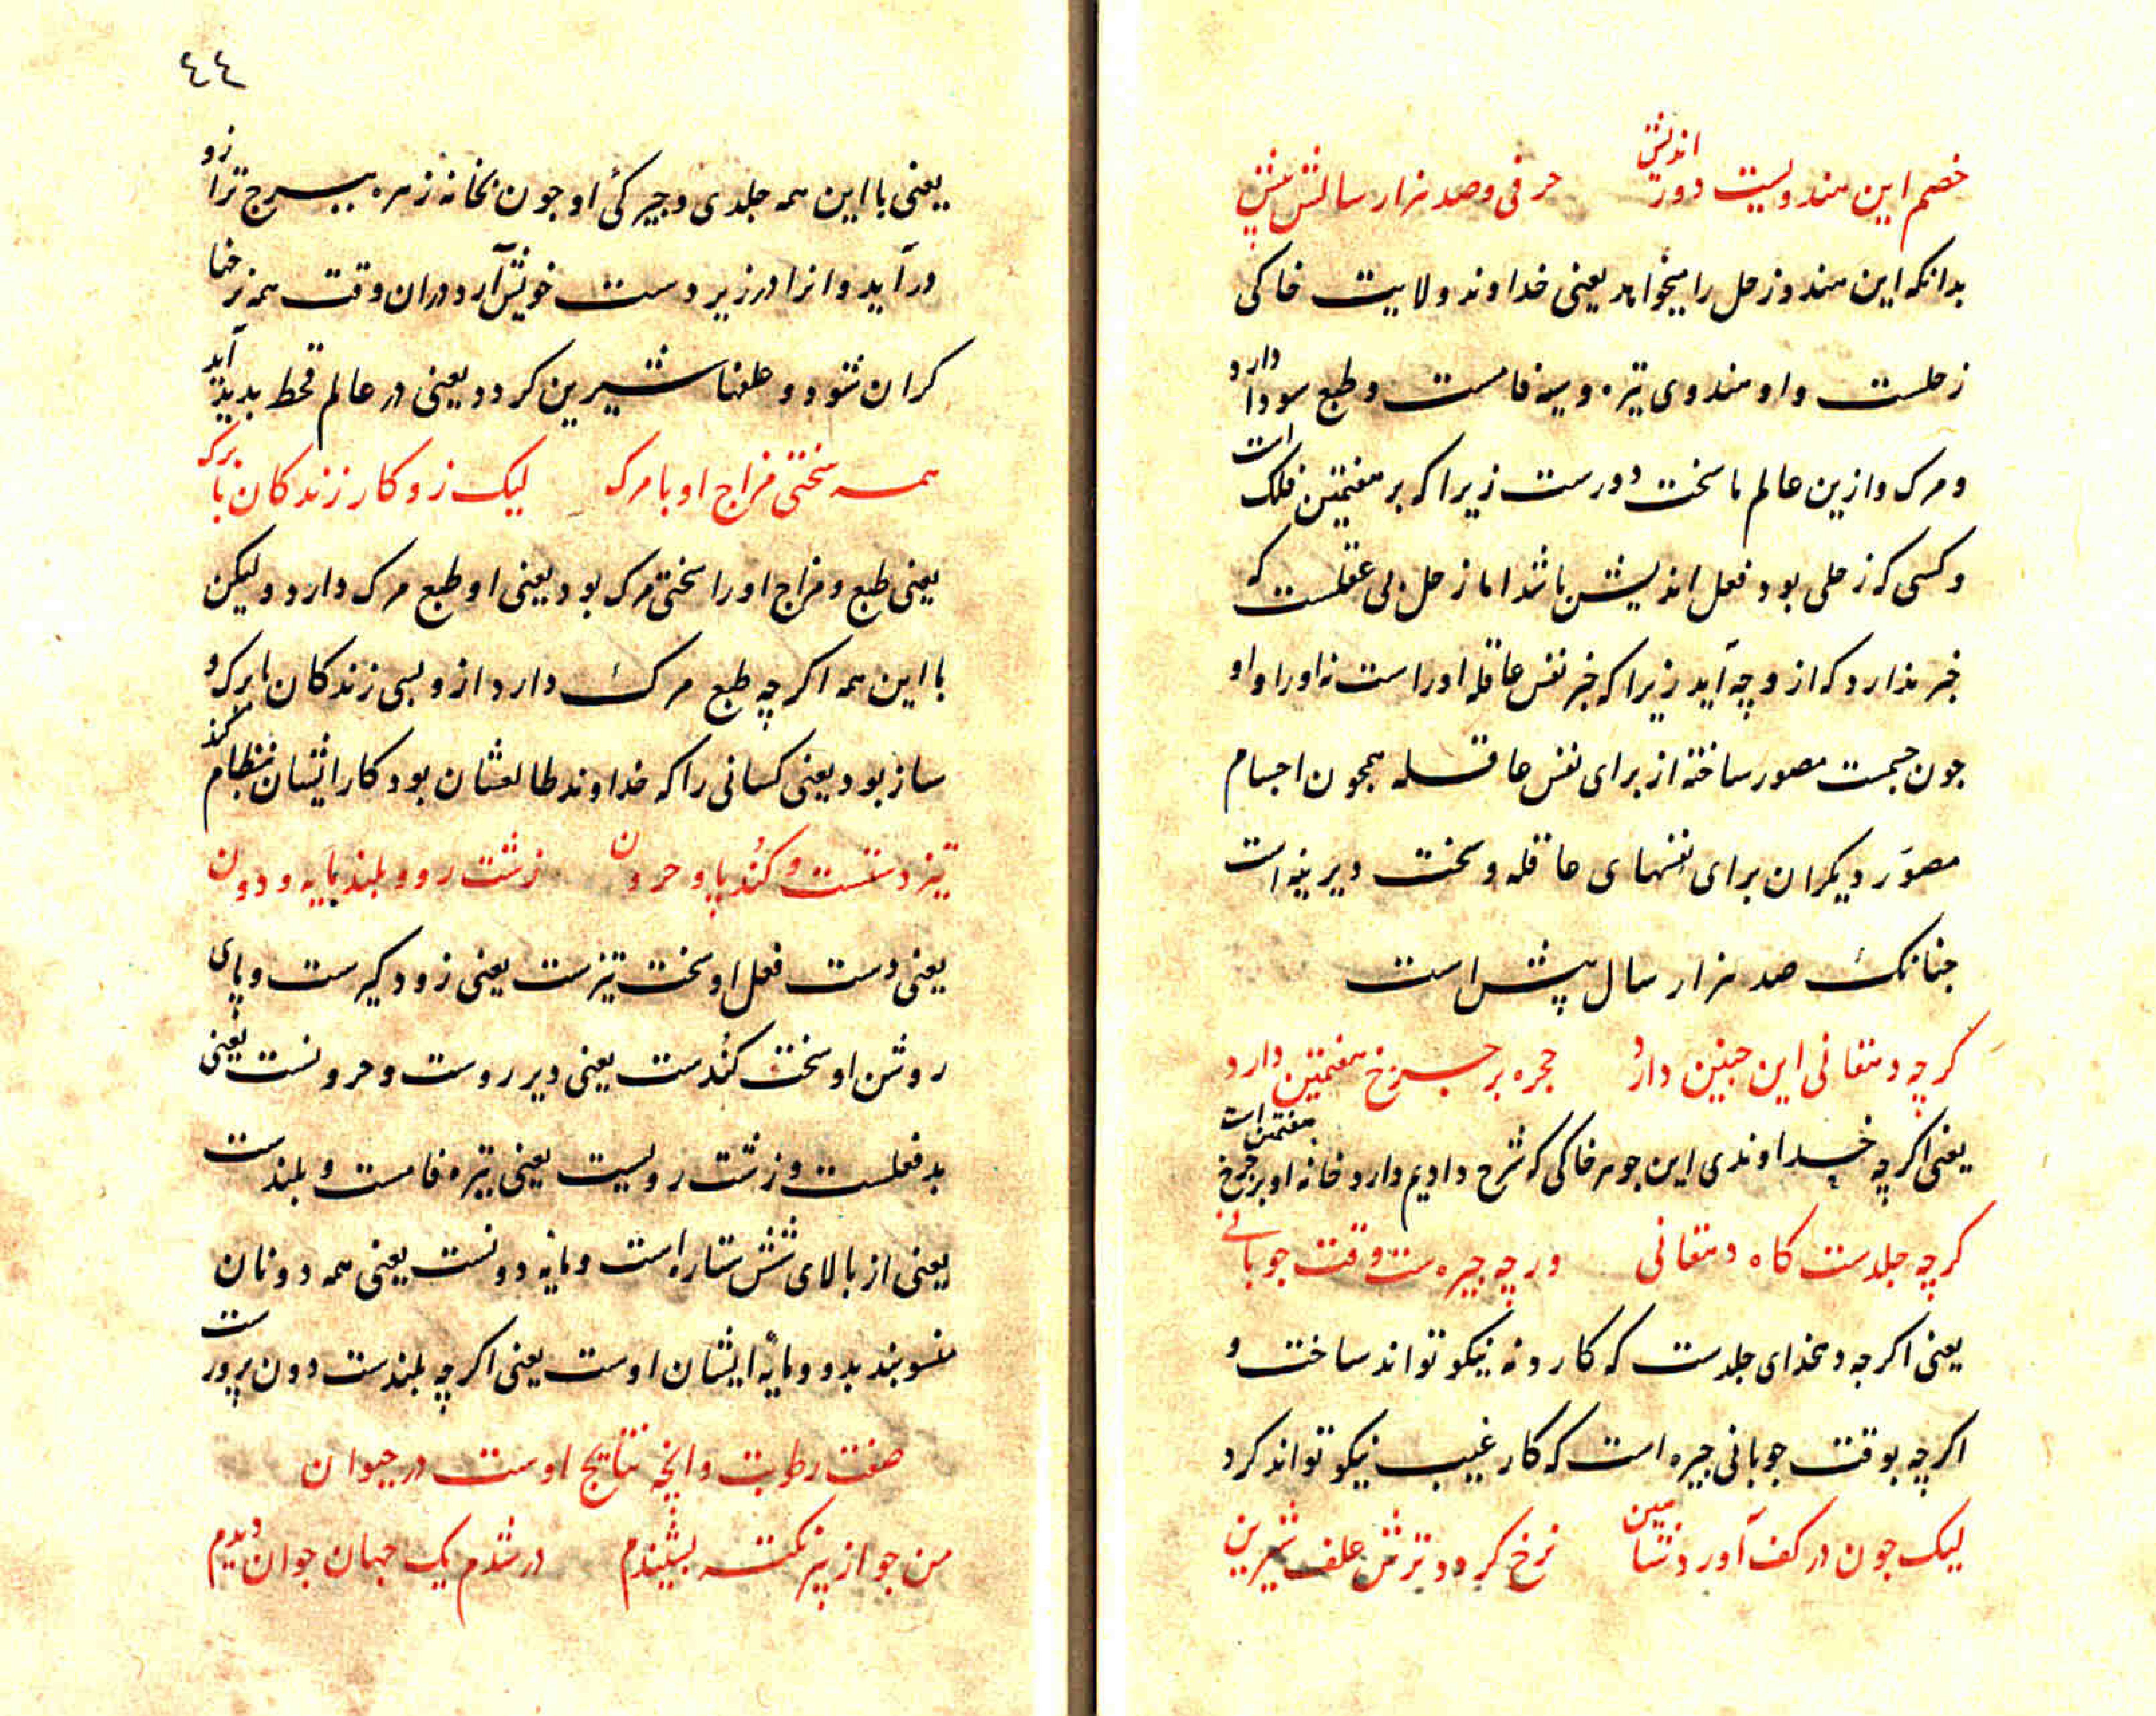 خصم این هندویست دور اندیش حرفی و صد هزار سالش پیش
بدانکه این هندو زحل را میخواهد یعنی خداوند ولایت خاکی
زحلست و او هندوی تیره و سیه فامست و طبع سودا دارد
و مرک و ازین عالم ما سخت دورست زیرا که بر هفتمین فلک است
و کسی که زحلی بود فعل اندیش باشد اما زحل بی عقلست که
خبر ندارد که از و چه آید زیرا که خبر نفس عاقله اوراست نه اورا و او
جون جسمست مصور ساخته از برای نفس عاقله همجون اجسام
مصوّر دیکران برای نفسهای عاقله و سخت دیرینه است
جنانک صد هزار سال پیش است
کرچه دهقانی این جنین دارد حجره بر چرخ هفتمین دارد
یعنی اکرچه خداوندی این جوهر خاکی که شرح دادیم دارد خانه او بر چرخ هفتمین است
کرچه جلدست کاه دهقانی ورچه چیره ست وقت جوبانی
یعنی اکرجه دهخدای جلدست که کار ده نیکو تواند ساخت و
اکرچه بوقت جوبانی جیره است که کار غیب نیکو تواند کرد
لیک جون در کف آورد شاهین نرخ کردد ترش علف شیرین
٤٤
یعنی با این همه جلدی و جیرکئ او جون بخانه زهره ببرج ترازو
در آید و انرا در زیر دست خویش آرد دران وقت همه نرخها
کران شود و علفها شیرین کردد یعنی در عالم قحط بدید آید
همه سختی مزاج او با مرک لیک زو کار زندکان با برک
یعنی طبع و مزاج اورا سختی مرک بود یعنی او طبع مرک دارد ولیکن
با این همه اکرچه طبع مرک دارد از و بسی زندکان با برک و
ساز بود یعنی کسانی را که خداوند طالعشان بود کار ایشان بنظام کند
تیز دستست و کُند پا و حرون زشت رو و بلند پایه و دون
یعنی دست فعل او سخت تیزست یعنی زود کیرست و پای
روشن او سخت کُندست یعنی دیر روست و حرونست یعنی
بد فعلست و زشت رویست یعنی تیره فامست و بلندست
یعنی از بالای شش ستاره است و مایه دونست یعنی همه دونان
منسوبند بدو و مایهٔ ایشان اوست یعنی اکرچه بلندست دون پرورست
صفت رطوبت و انچه نتایج اوست در حیوان
من جو از پیر نکته بشنیدم در شدم یک جهان جوان دیدم